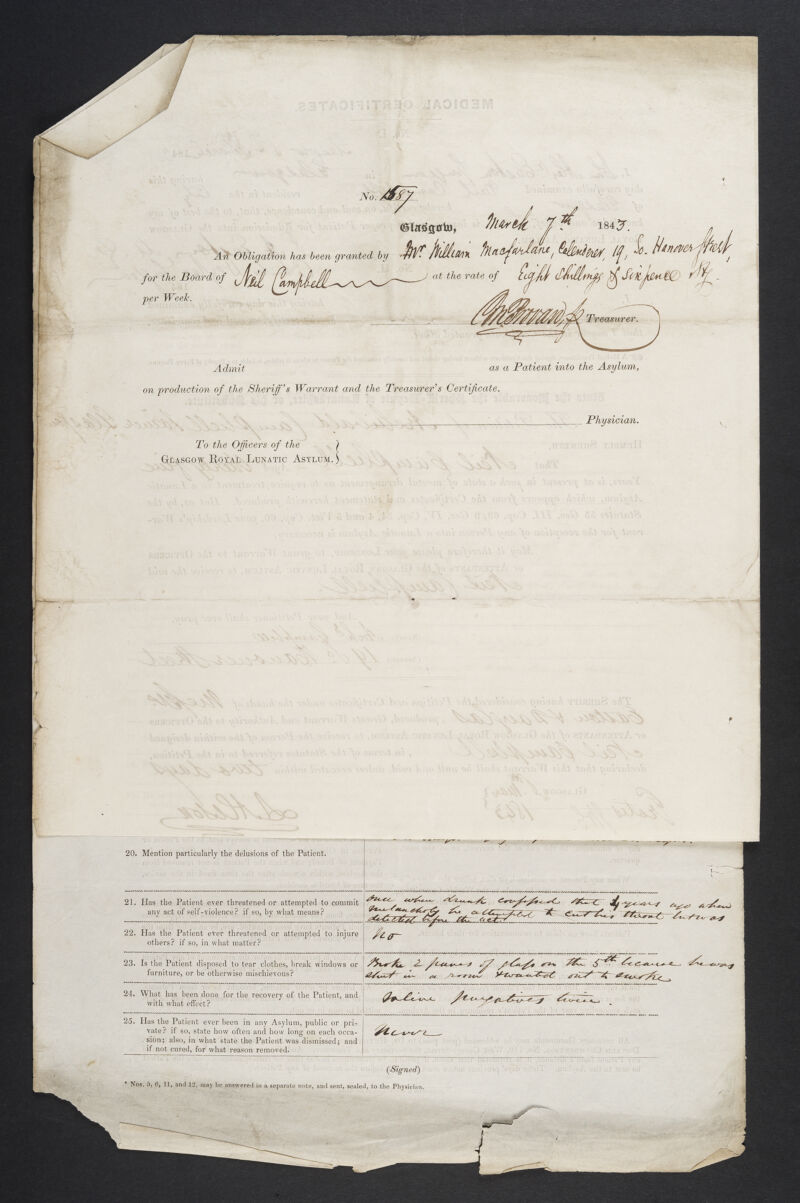 No. 1587
Glasgow, March 7th 1843.
An Obligation has been granted by Mr William Macfarlane, Calenderer, 19, So. Hanover Street,
for the Board of Neil Campbell at the rate of Eight Shillings & Sixpence Stg.
per Week.
Treasurer.
Admit as a Patient into the Asylum,
on production of the Sheriff's Warrant and the Treasurer's Certificate.
Physician.
To the Officers of the
Glasgow Royal Lunatic Asylum.
20. Mention particularly the delusions of the Patient.
21. Has the Patient ever threatened or attempted to commit
any act of self-violence? if so, by what means?
once when drunk confessed that 4 years ago when
melancholy he attempted to cut his throat but was
detected before the act
22. Has the Patient ever threatened or attempted to injure
others? if so, in what matter?
No
23. Is the Patient disposed to tear clothes, break windows or
furniture, or be otherwise mischievous?
Broke 2 panes of glass on the 5th because he was
shut in a room & wanted out to smoke
24. What has been done for the recovery of the Patient, and
with what effect?
Saline purgatives twice.
25. Has the Patient ever been in any Asylum, public or pri-
vate? if so, state how often and how long on each occa-
sion; also, in what state the Patient was dismissed; and
if not cured, for what reason removed.
Never
(Signed)
* Nos. 5, 6, 11, and 12, may be answered in a separate note, and sent, sealed, to the Physician.